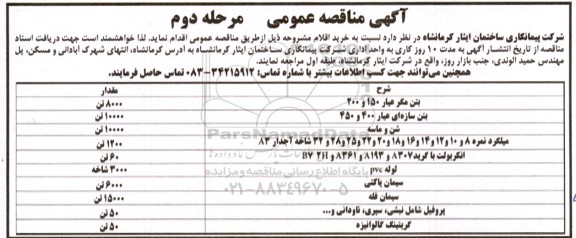 آگهی مناقصه عمومی مرحله دوم
شرکت پیمانکاری ساختمان ایثار کرمانشاه در نظر دارد نسبت به خرید اقلام مشروحه ذیل ازطریق مناقصه عمومی اقدام نماید. لذا خواهشمند است جهت دریافت اسناد
مناقصه از تاریخ انتشار آگهی به مدت ۱۰ روز کاری به واحد اداری شرکت پیمانکاری ساختمان ایثار کرمانشاه به آدرس کرمانشاه، انتهای شهرک آبادانی و مسکن، پل
مهندس حمید الوندی، جنب بازار روز، واقع در شرکت ایثار کرمانشاه، طبقه اول مراجعه نمایند.
همچنین می‌توانند جهت کسب اطلاعات بیشتر با شماره تماس: ۳۴۲۱۵۹۱۲-۰۸۳ تماس حاصل فرمایند.
شرح مقدار
بتن مگر عیار ۱۵۰ و ۲۰۰ ۸۰۰۰ تن
بتن سازه‌ای عیار ۴۰۰ و ۴۵۰ ۱۰۰۰۰ تن
شن و ماسه ۱۰۰۰۰ تن
میلگرد نمره ۸ و ۱۰ و ۱۲ و ۱۴ و ۱۶ و ۱۸ و ۲۰ و ۲۲ و ۲۵ و ۲۸ و ۳۲ شاخه آجدار ۸۳ ۱۲۰۰ تن
انکربولت با گرید ۸۳۰۷ و ۸۱۹۳ و ۸۳۶۱ و B۷ ۲H ۶۰ تن
لوله pvc ۳۰۰۰ شاخه
سیمان پاکتی ۶۰۰۰ تن
سیمان فله ۱۵۰۰۰ تن
پروفیل شامل نبشی، سپری، ناودانی و... ۵۰ تن
گریتینگ گالوانیزه ۵۰ تن
ParsNamadData
پایگاه اطلاع رسانی مناقصه و مزایده
۰۲۱-۸۸۳۴۹۶۷۰-۵